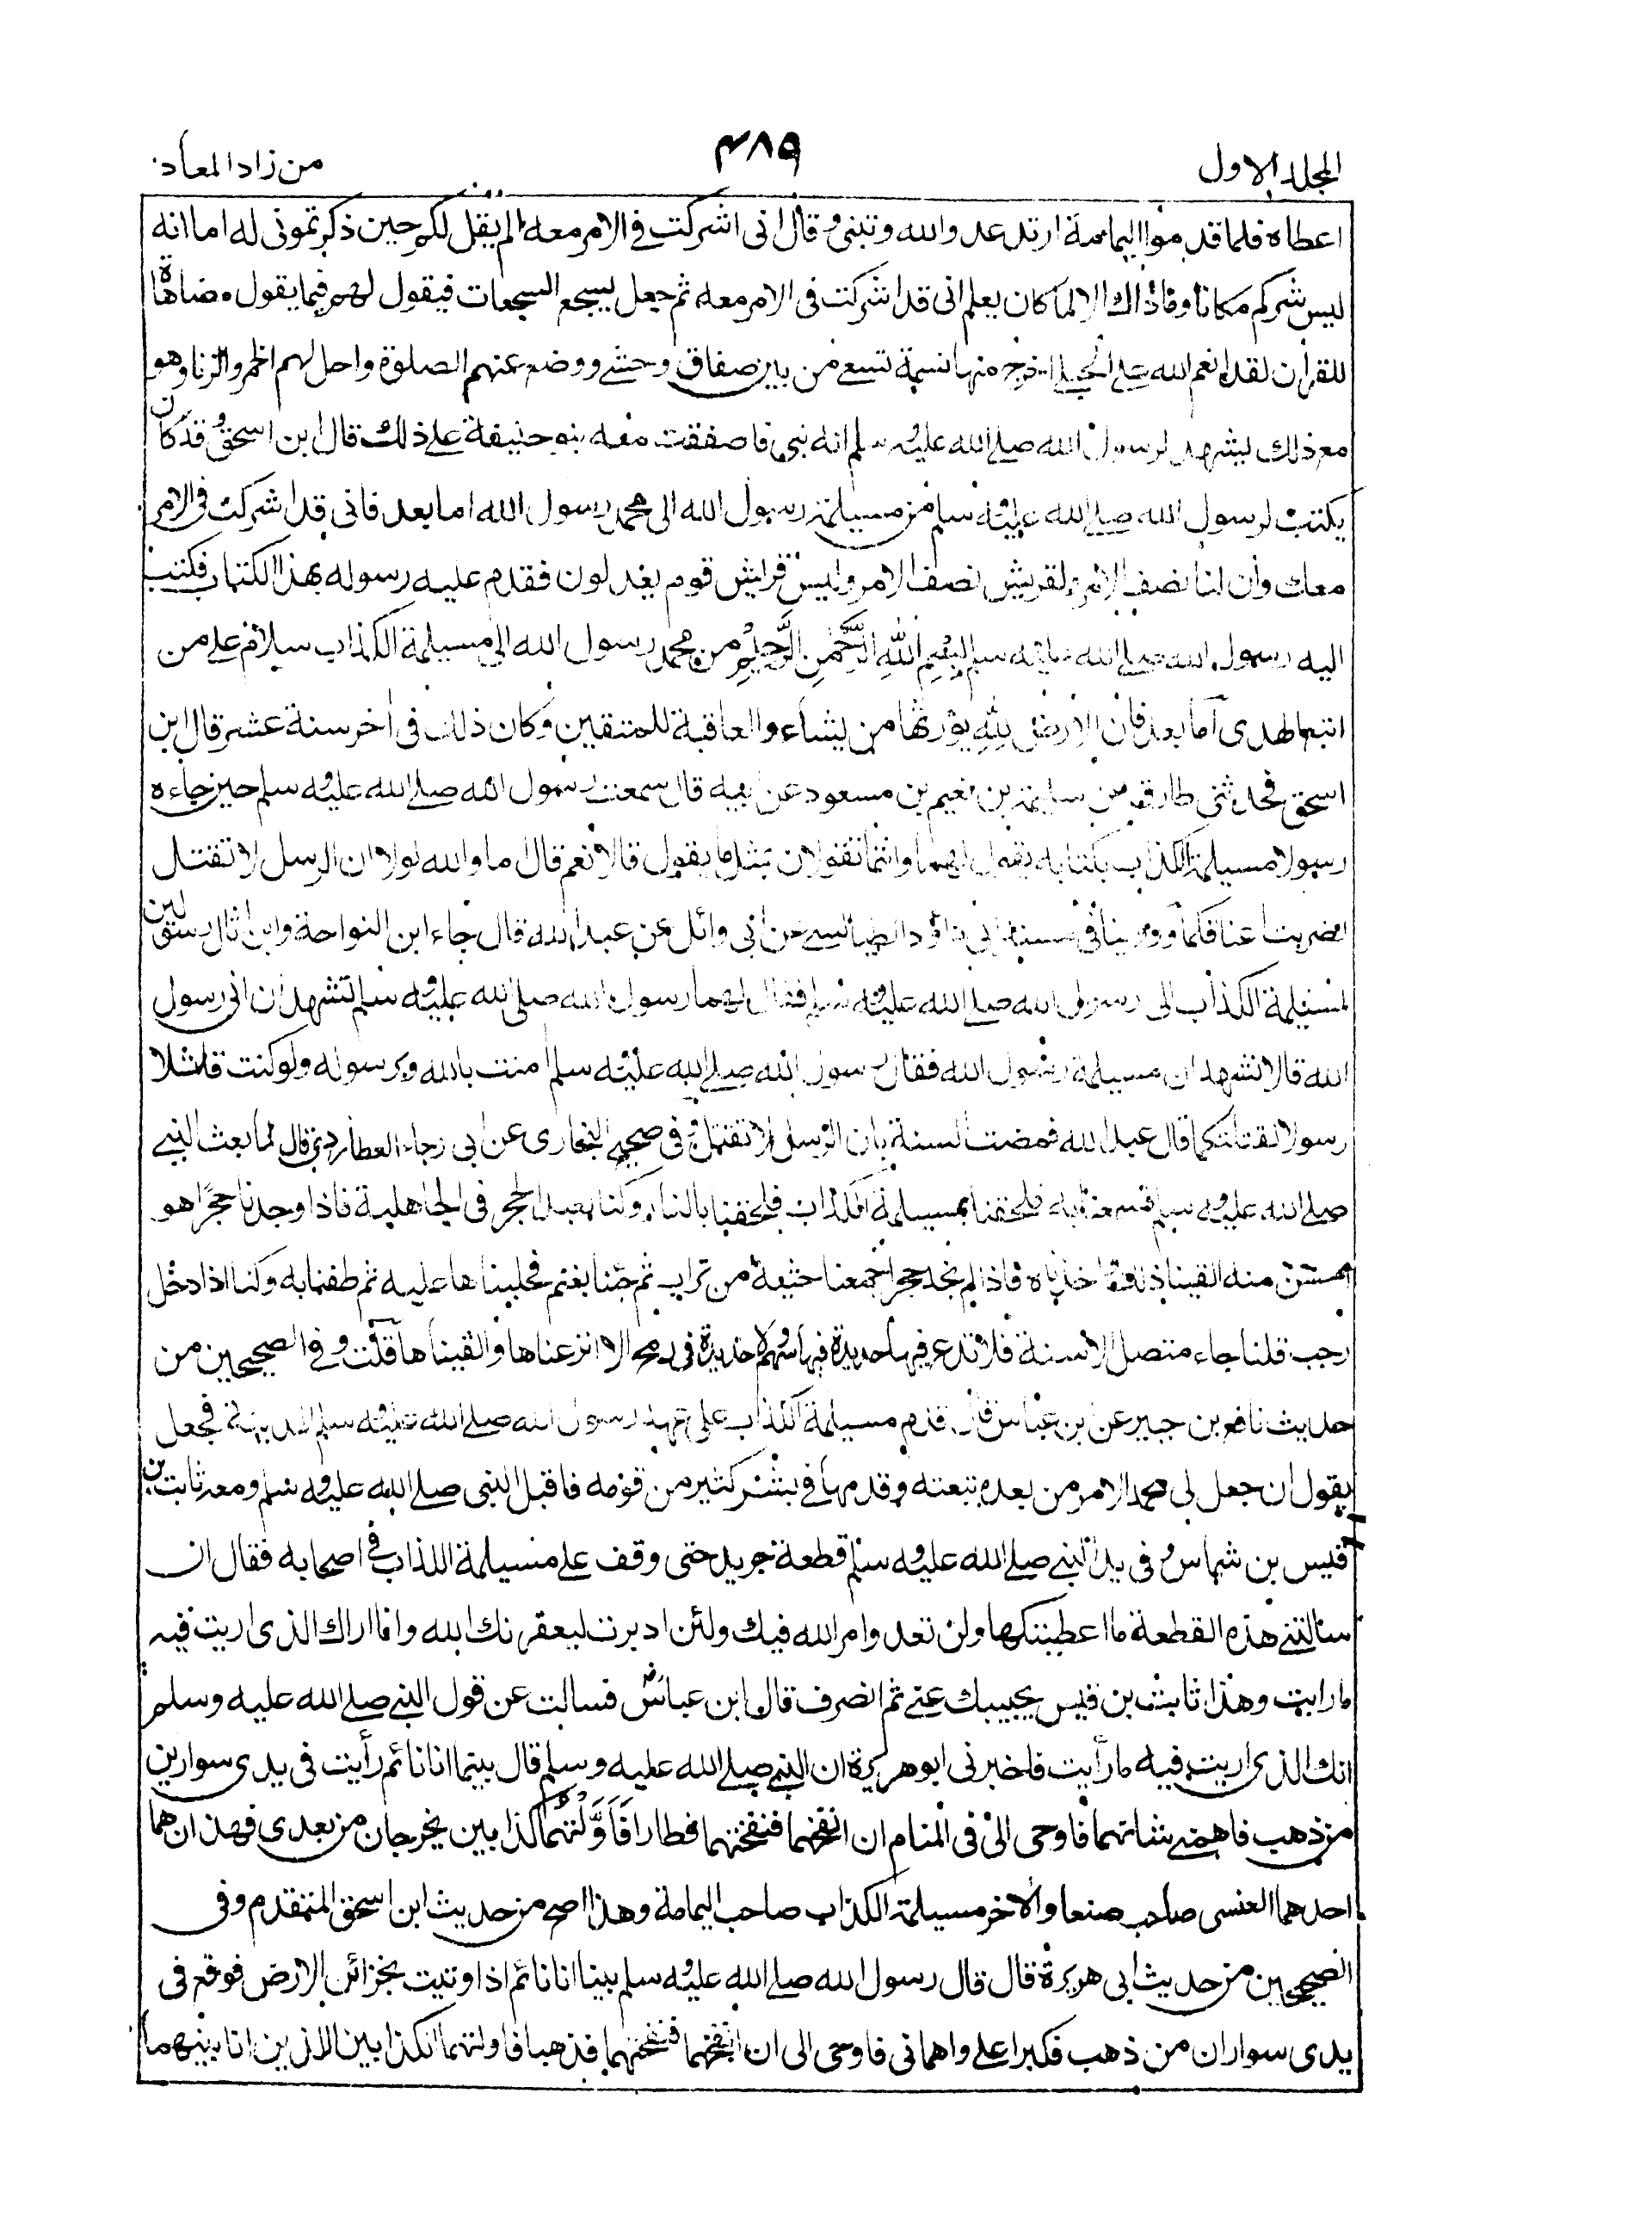 المجلد الاول
٤٨٩
من زاد المعاد
اعطاه فلما قدموا اليمامة ارتد عدو الله وتنبئ وقال انى اشركت فى الامر معه الم يقل لكم حين ذكرتمونى له اما انه
ليس شركم مكانا وما ذاك الا لما كان يعلم انى قد اشركت فى الامر معه ثم جعل يسجع السجعات فيقول لهم فيما يقول مضاهاة
للقرآن لقد انعم الله على الحبلى اخرج منها نسمة تسعى من بين صفاق وحشى ووضع عنهم الصلوة واحل لهم الخمر والزنا وهو
مع ذلك يشهد لرسول الله صلى الله عليه وسلم انه نبى فاصفقت معه بنو حنيفة على ذلك قال ابن اسحق وقد كان
يكتب لرسول الله صلى الله عليه وسلم من مسيلمة رسول الله الى محمد رسول الله اما بعد فانى قد اشركت فى الامر
معك وان لنا نصف الامر ولقريش نصف الامر وليس قريش قوم يعدلون فقدم عليه رسوله بهذا الكتاب فكتب
اليه رسول الله صلى الله عليه وسلم بِسْمِ اللهِ الرَّحْمٰنِ الرَّحِيْمِ من محمد رسول الله الى مسيلمة الكذاب سلام على من
اتبع الهدى اما بعد فان الارض لله يورثها من يشاء والعاقبة للمتقين وكان ذلك فى اخر سنة عشر قال ابن
اسحق فحدثنى طارق بن سلمة بن نعيم بن مسعود عن ابيه قال سمعت رسول الله صلى الله عليه وسلم حين جاءه
رسولا مسيلمة الكذاب بكتابه يقول لهما وانتما تقولان بمثل ما يقول قالا نعم قال اما والله لولا ان الرسل لا تقتل
لضربت اعناقكما وروينا فى مسند ابى داؤد الطيالسى عن ابى وائل عن عبد الله قال جاء ابن النواحة وابن اثال رسولين
لمسيلمة الكذاب الى رسول الله صلى الله عليه وسلم فقال لهما رسول الله صلى الله عليه وسلم تشهدان انى رسول
الله قالا نشهد ان مسيلمة رسول الله فقال رسول الله صلى الله عليه وسلم امنت بالله وبرسوله ولو كنت قاتلا
رسولا لقتلتكما قال عبد الله فمضت السنة بان الرسل لا تقتل وفى صحيح البخارى عن ابى رجاء العطاردى قال لما بعث النبى
صلى الله عليه وسلم فسمعنا به فلحقنا بمسيلمة الكذاب فلحقنا بالنار وكنا نعبد الحجر فى الجاهلية فاذا وجدنا حجرًا هو
احسن منه القينا ذلك واخذناه فاذا لم نجد حجرا جمعنا حثية من تراب ثم جئنا بغنم فحلبناها عليه ثم طفنا به وكنا اذا دخل
رجب قلنا جاء منصل الاسنة فلا ندع فيها حديدة فيها سهم ولا حديدة فى رمح الا انتزعناها والقيناها قلت وفى الصحيحين من
حديث نافع بن جبير عن ابن عباس قال قدم مسيلمة الكذاب على عهد رسول الله صلى الله عليه وسلم المدينة فجعل
يقول ان جعل لى محمد الامر من بعده تبعته وقدمها فى بشر كثير من قومه فاقبل النبى صلى الله عليه وسلم ومعه ثابت بن
قيس بن شماس وفى يد النبى صلى الله عليه وسلم قطعة جريد حتى وقف على مسيلمة الكذاب فى اصحابه فقال ان
سئالتنى هذه القطعة ما اعطيتكها ولن تعدو امر الله فيك ولئن ادبرت ليعقرنك الله وانا اراك الذى اريت فيه
ما رايت وهذا ثابت بن قيس يجيبك عنى ثم انصرف قال ابن عباس فسالت عن قول النبى صلى الله عليه وسلم
انك الذى اريت فيه ما رأيت فاخبرنى ابو هريرة ان النبى صلى الله عليه وسلم قال بينما انا نائم رأيت فى يدى سوارين
من ذهب فاهمنى شانهما فاوحى الىّ فى المنام ان انفخهما فنفختهما فطارا فَاَوَّلْتُهُمَا كذابين يخرجان من بعدى فهذان هما
احدهما العنسى صاحب صنعا والاخر مسيلمة الكذاب صاحب اليمامة وهذا اصح من حديث ابن اسحق المتقدم وفى
الصحيحين من حديث ابى هريرة قال قال رسول الله صلى الله عليه وسلم بينا انا نائم اذ اوتيت بخزائن الارض فوقع فى
يدى سواران من ذهب فكبرا على واهمانى فاوحى الى ان انفخهما فنفختهما فذهبا فاولتهما الكذابين الذين انا بينهما